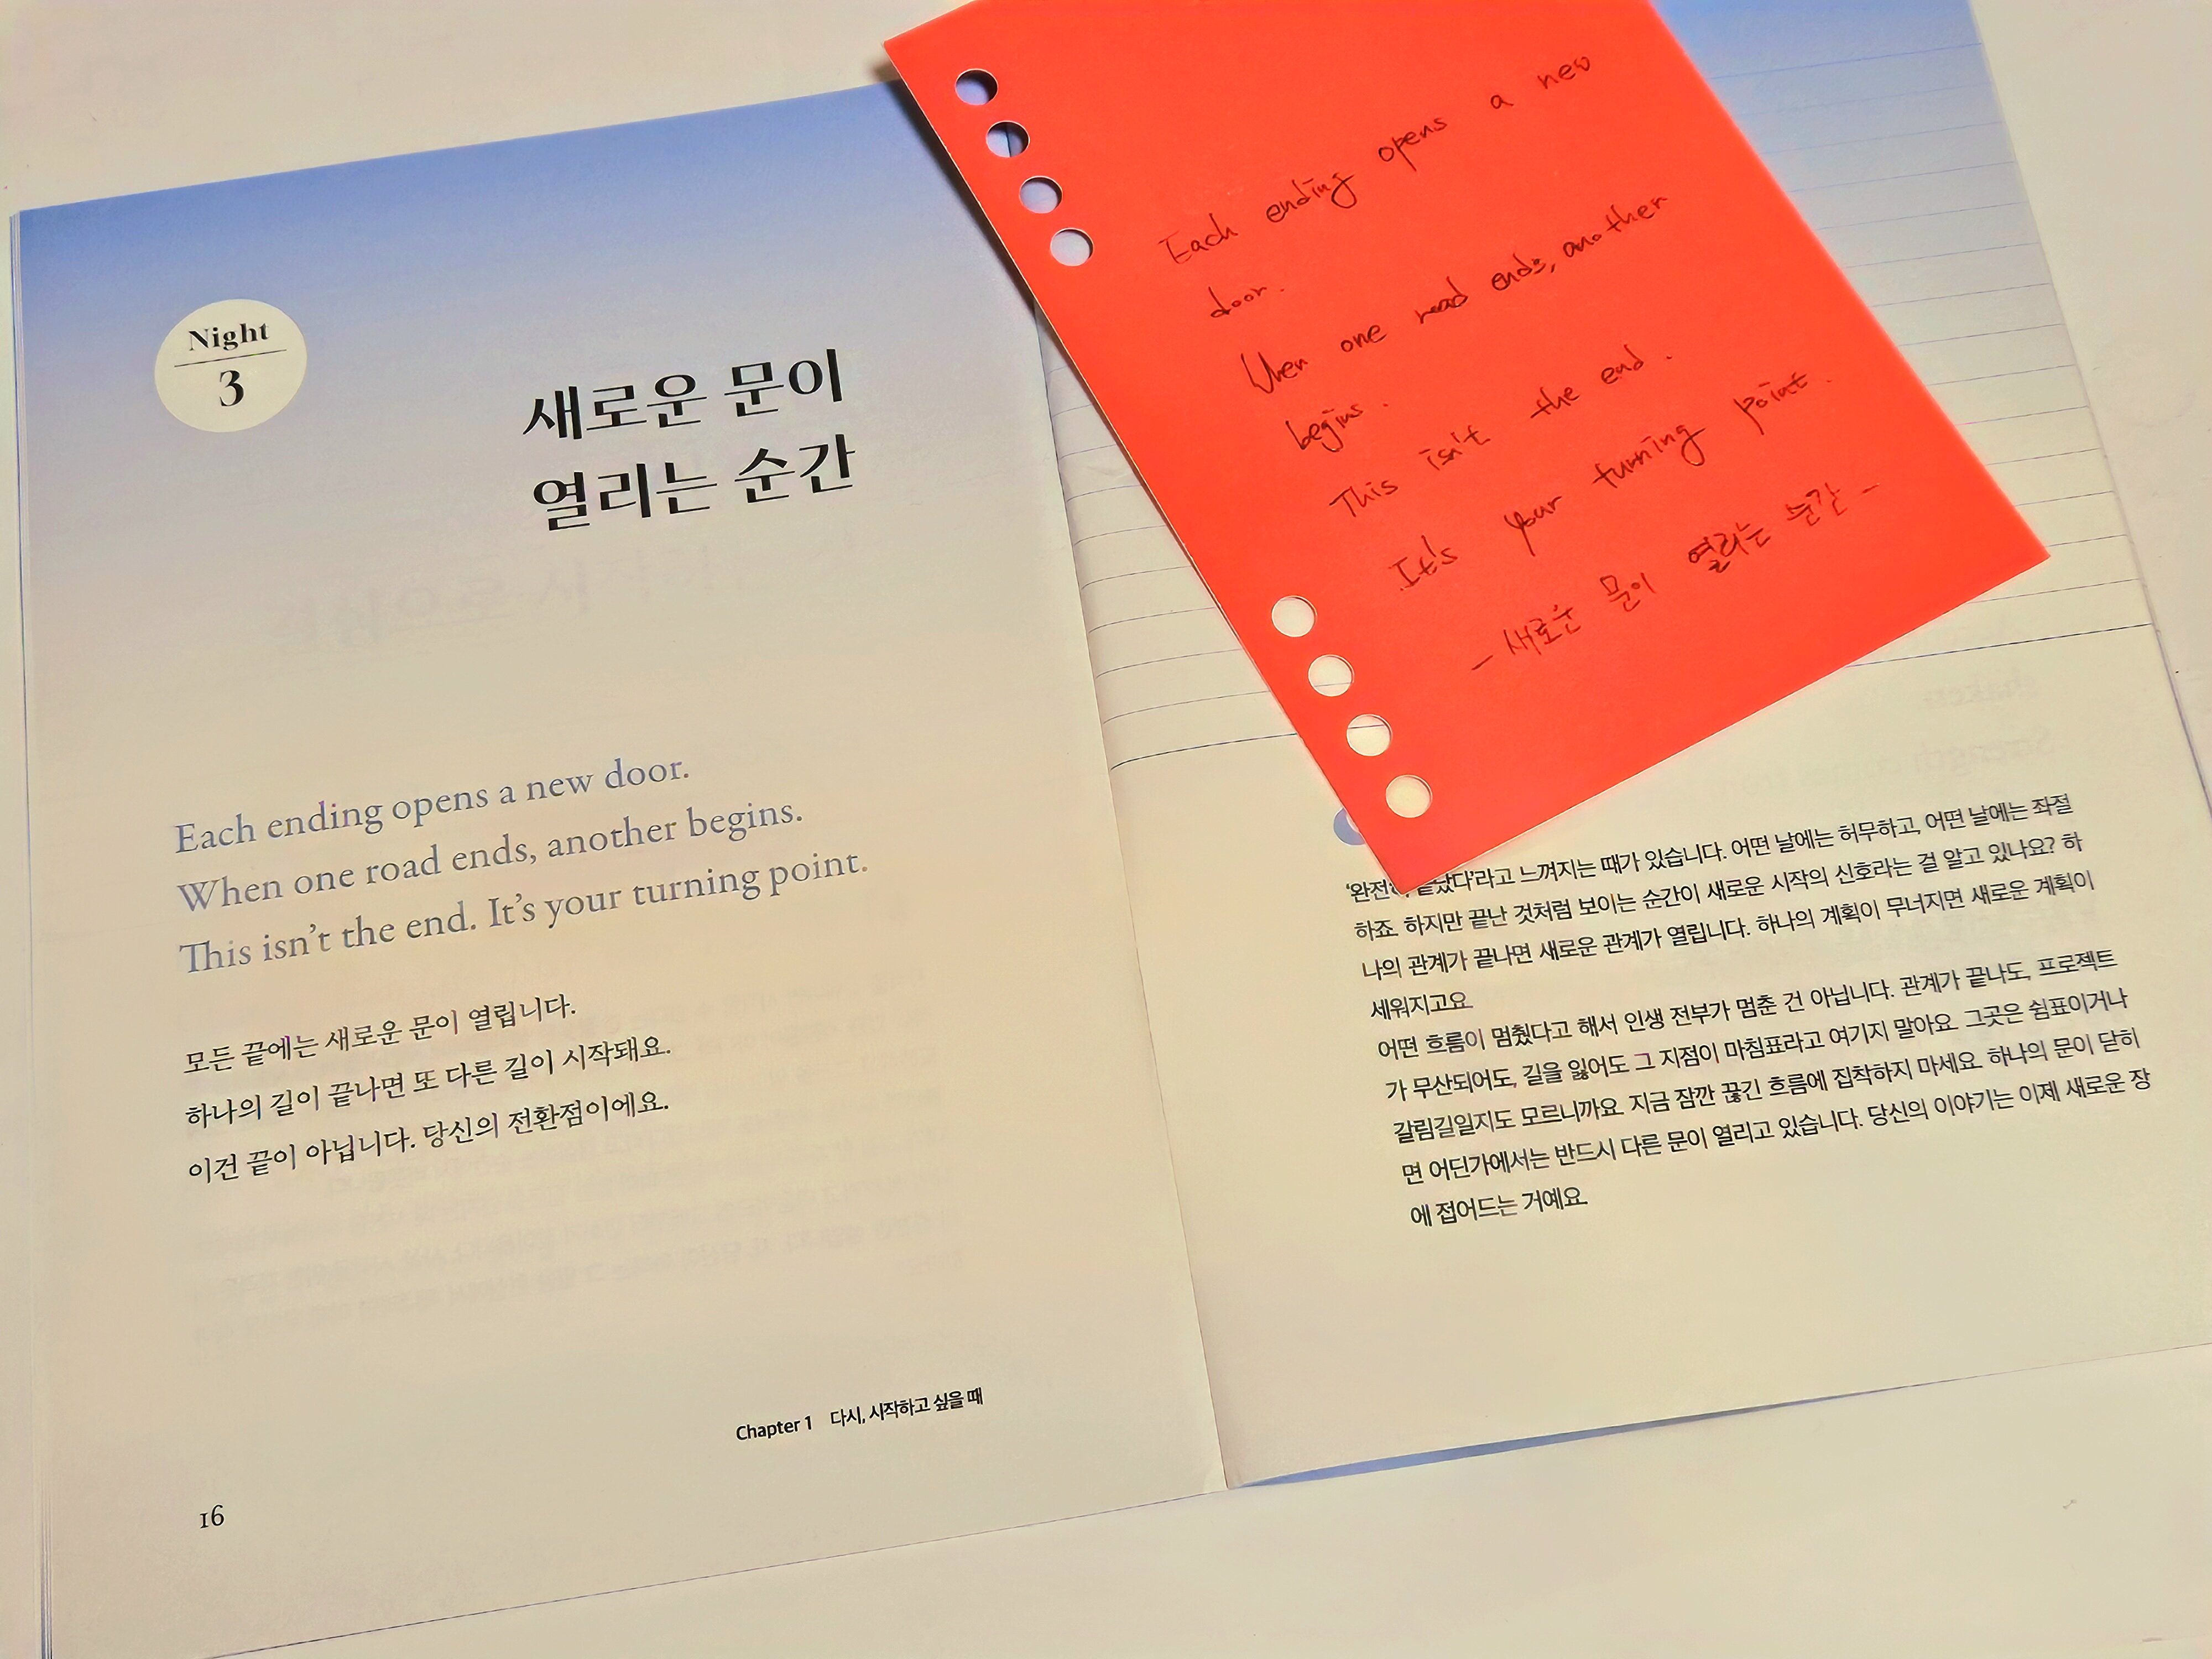 Night
3
새로운 문이
열리는 순간
Each ending opens a new door.
When one road ends, another begins.
This isn't the end. It's your turning point.
모든 끝에는 새로운 문이 열립니다.
하나의 길이 끝나면 또 다른 길이 시작돼요.
이건 끝이 아닙니다. 당신의 전환점이에요.
Chapter 1 다시, 시작하고 싶을 때
16
Each ending opens a new
door.
When one road ends, another
begins.
This isn't the end.
It's your turning point.
- 새로운 문이 열리는 순간 -
끝났다'라고 느껴지는 때가 있습니다. 어떤 날에는 허무하고, 어떤 날에는 좌절
하죠. 하지만 끝난 것처럼 보이는 순간이 새로운 시작의 신호라는 걸 알고 있나요? 하
나의 관계가 끝나면 새로운 관계가 열립니다. 하나의 계획이 무너지면 새로운 계획이
세워지고요.
어떤 흐름이 멈췄다고 해서 인생 전부가 멈춘 건 아닙니다. 관계가 끝나도, 프로젝트
가 무산되어도, 길을 잃어도 그 지점이 마침표라고 여기지 말아요. 그곳은 쉼표이거나
갈림길일지도 모르니까요. 지금 잠깐 끊긴 흐름에 집착하지 마세요. 하나의 문이 닫히
면 어딘가에서는 반드시 다른 문이 열리고 있습니다. 당신의 이야기는 이제 새로운 장
에 접어드는 거예요.